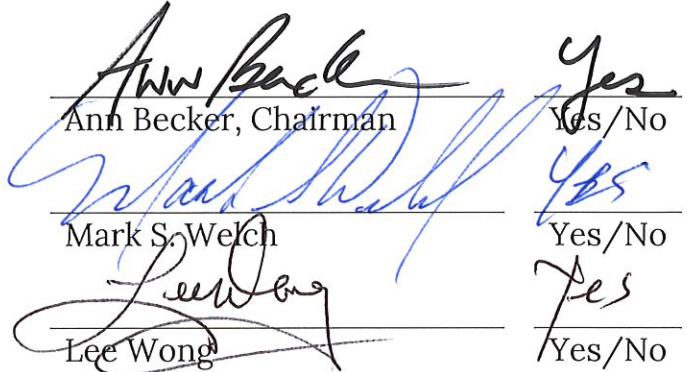 Ann Becker Yes
Ann Becker, Chairman Yes/No
Mark S. Welch YES
Mark S. Welch Yes/No
Lee Wong Yes
Lee Wong Yes/No